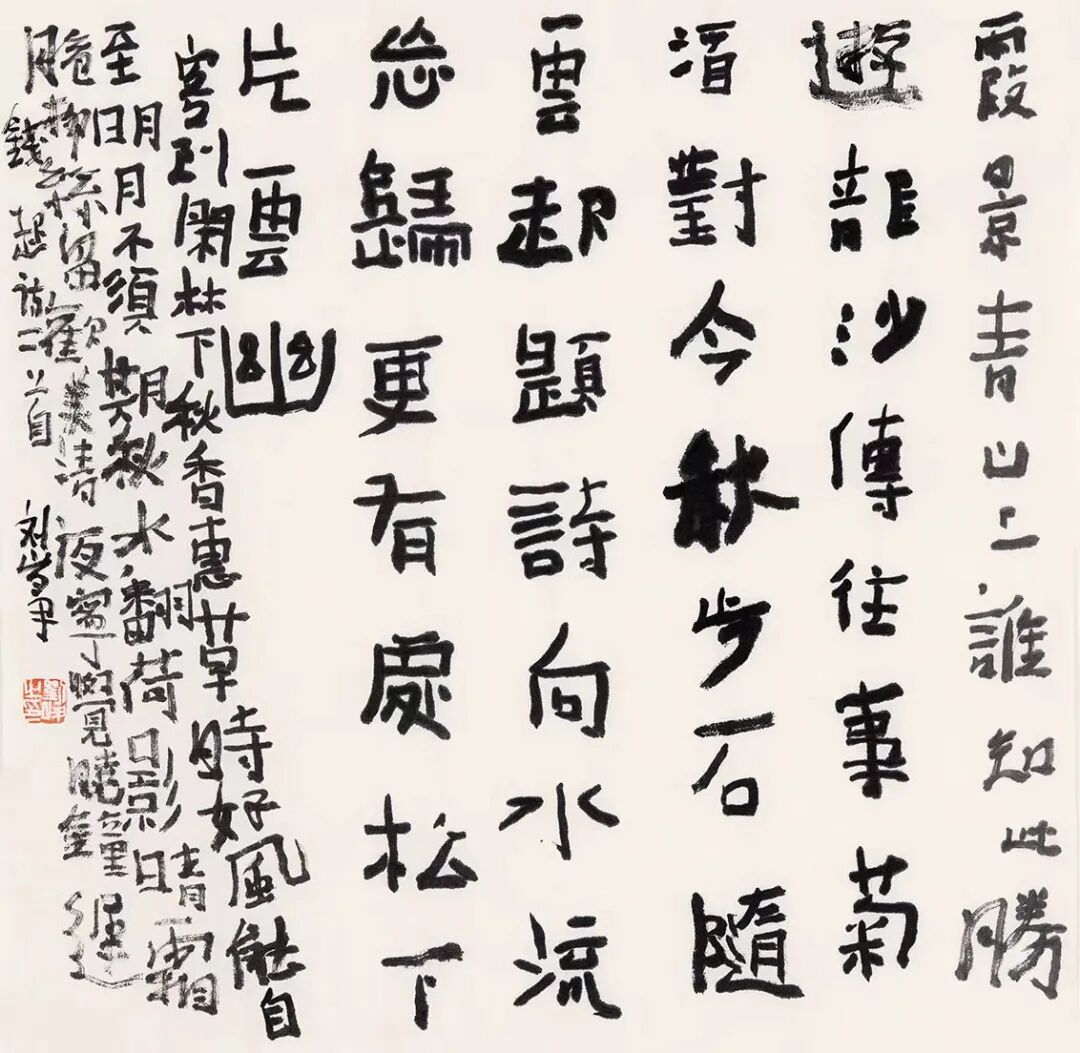 霞景青山上誰知此勝
遊龍沙傳往事菊
酒對今秋步石隨
雲起題詩向水流
忘歸更有處松下
片雲幽
客到閑林下秋香蕙草時好風能自
至明月不須期秋水翻荷影晴霜
脆柳條留歡美清夜寧覺曉鐘遲
錢起詩二首 刘